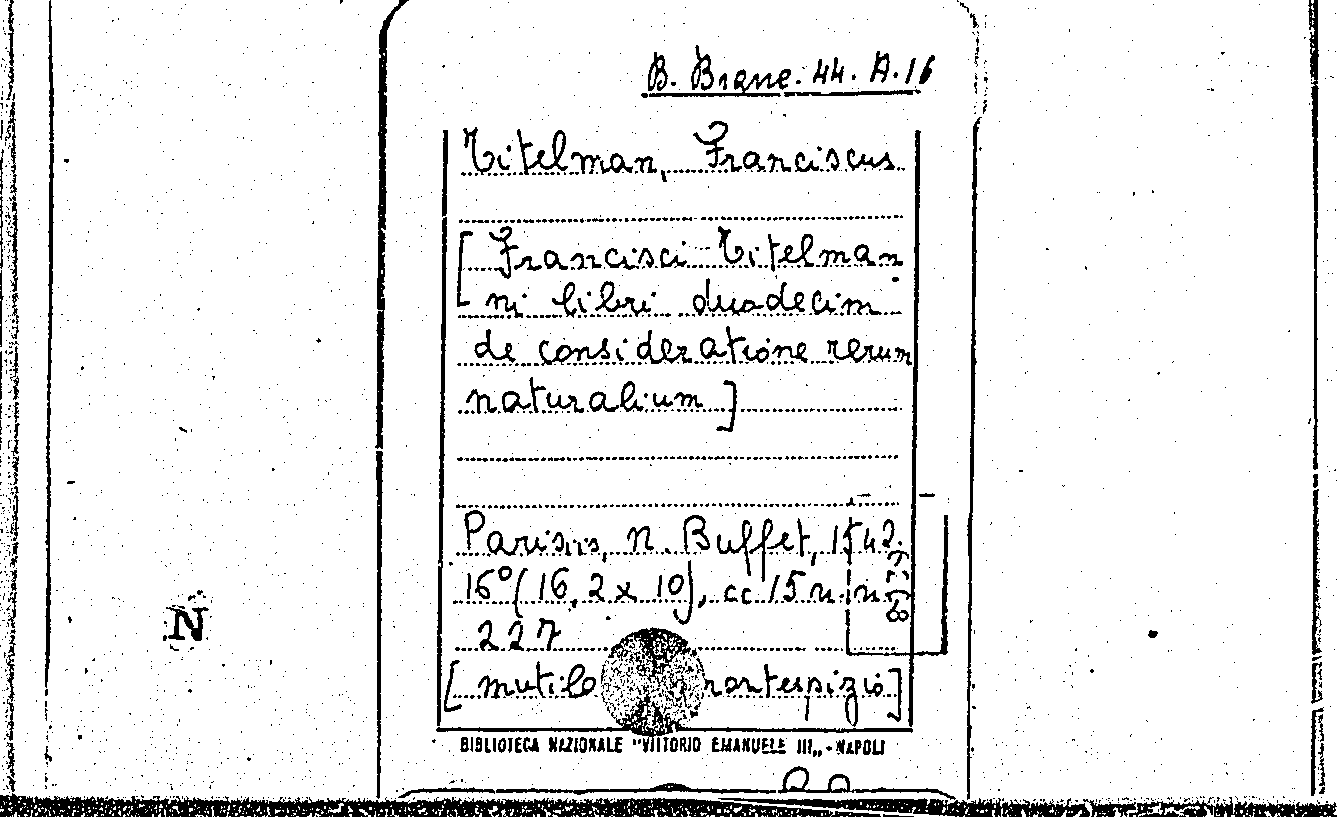 B. Branc. 44. A.16
Titelman, Franciscus
[ Francisci Titelman
ni libri duodecim
de consideratione rerum
naturalium ]
Parisiis, N. Buffet, 1542.
16° (16,2 x 10), cc 15 n. n.
227
[ mutilo frontespizio ]
BIBLIOTECA NAZIONALE "VITTORIO EMANUELE III„ - NAPOLI
N